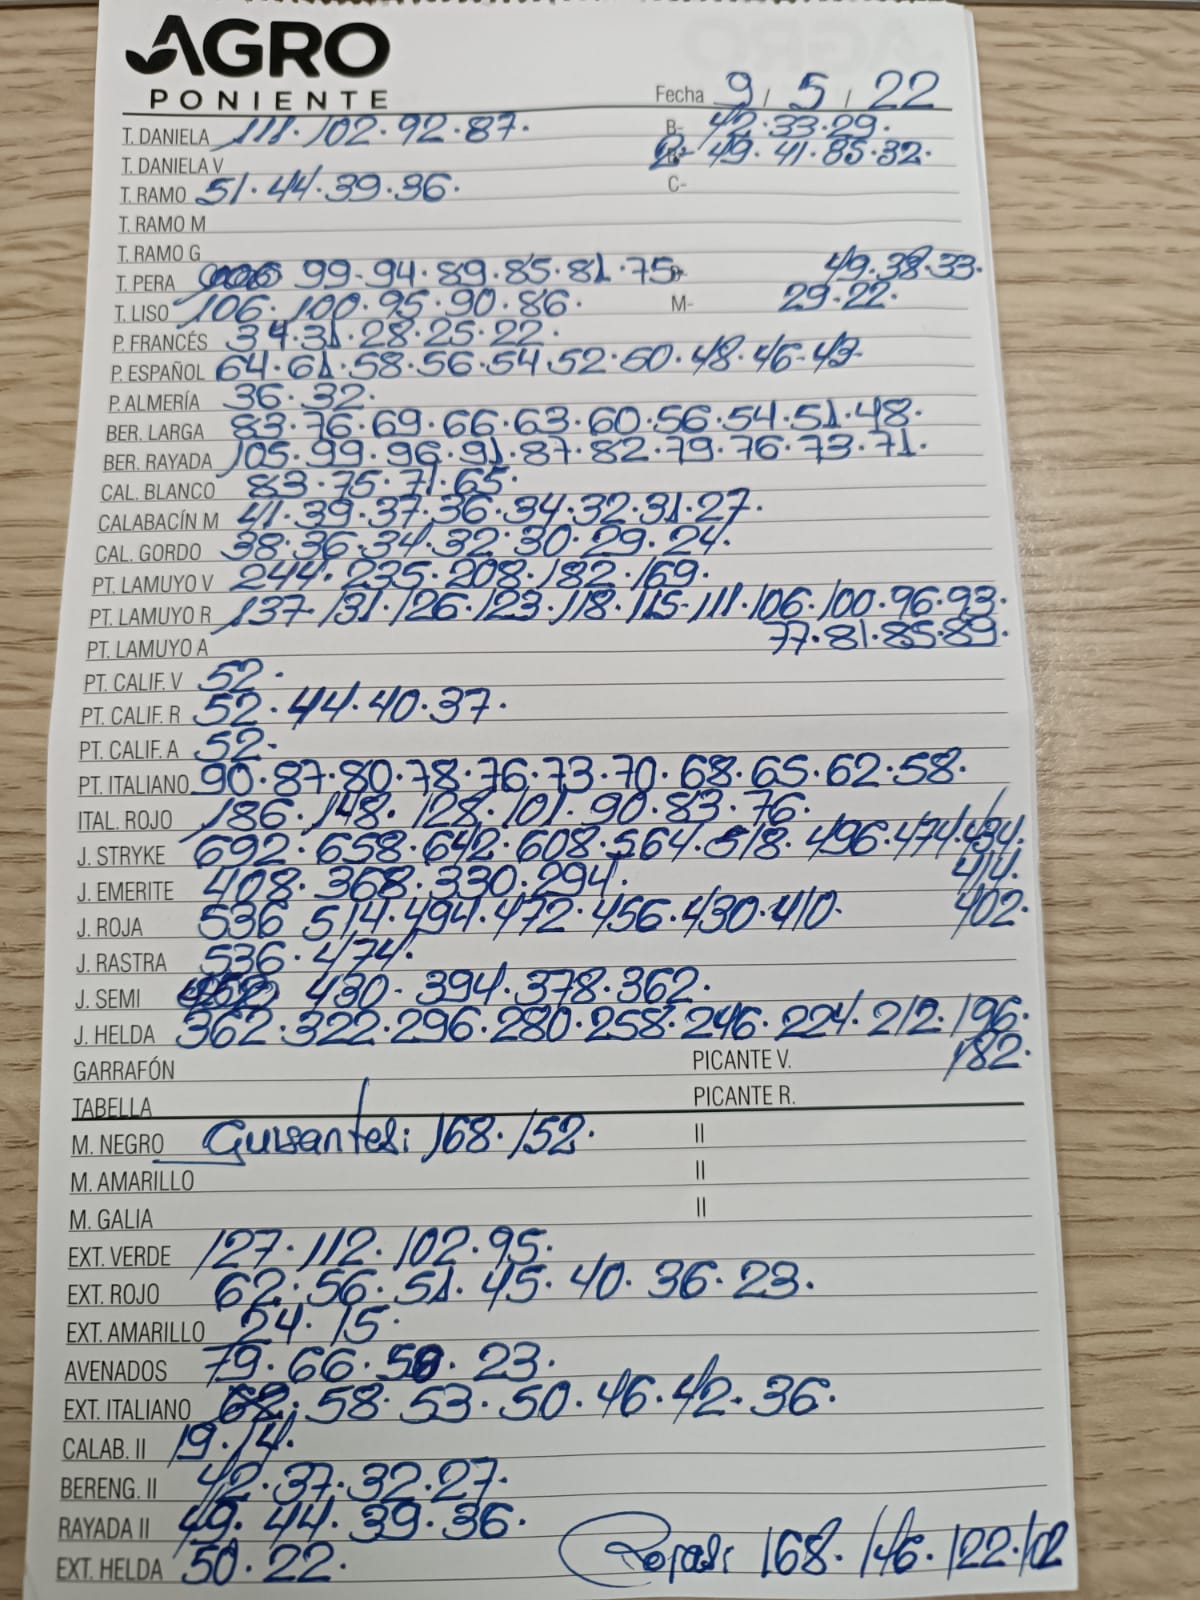 AGRO
PONIENTE
Fecha 9 / 5 / 22
T. DANIELA 111·102·92·87· B- 42·33·29·
T. DANIELA V 49·41·85·32·
T. RAMO 51·44·39·36· C-
T. RAMO M
T. RAMO G
T. PERA 99-94·89·85·81·75 49·38·33·
T. LISO 106·100·95·90·86· M- 29·22·
P. FRANCÉS 34·31·28·25·22·
P. ESPAÑOL 64·61·58·56·54·52·50·48·46·43
P. ALMERÍA 36·32·
BER. LARGA 83·76·69·66·63·60·56·54·51·48·
BER. RAYADA 105·99·96·91·87·82·79·76·73·71·
CAL. BLANCO 83·75·71·65·
CALABACÍN M 41·39·37·36·34·32·31·27·
CAL. GORDO 38·36·34·32·30·29·24·
PT. LAMUYO V 244·235·208·182·169·
PT. LAMUYO R 137·131·126·123·118·115·111·106·100·96·93·
PT. LAMUYO A 77·81·85·89·
PT. CALIF. V 52·
PT. CALIF. R 52·44·40·37·
PT. CALIF. A 52·
PT. ITALIANO 90·87·80·78·76·73·70·68·65·62·58·
ITAL. ROJO 186·148·128·101·90·83·76·
J. STRYKE 692·658·642·608·564·518·496·474·434·
J. EMERITE 408·368·330·294· 414·
J. ROJA 536 514·494·472·456·430·410· 402·
J. RASTRA 536·474·
J. SEMI 430-394·378·362·
J. HELDA 362·322·296·280·258·246·224·212·196·
GARRAFÓN PICANTE V. 182·
TABELLA PICANTE R.
M. NEGRO Guisantes: 168·152· II
M. AMARILLO II
M. GALIA II
EXT. VERDE 127·112·102·95·
EXT. ROJO 62·56·51·45·40·36·23·
EXT. AMARILLO 24·15·
AVENADOS 79·66·50·23·
EXT. ITALIANO 62·58·53·50·46·42·36·
CALAB. II 19·14·
BERENG. II 42·37·32·27·
RAYADA II 49·44·39·36·
EXT. HELDA 50·22· Rojas: 168·146·122·102